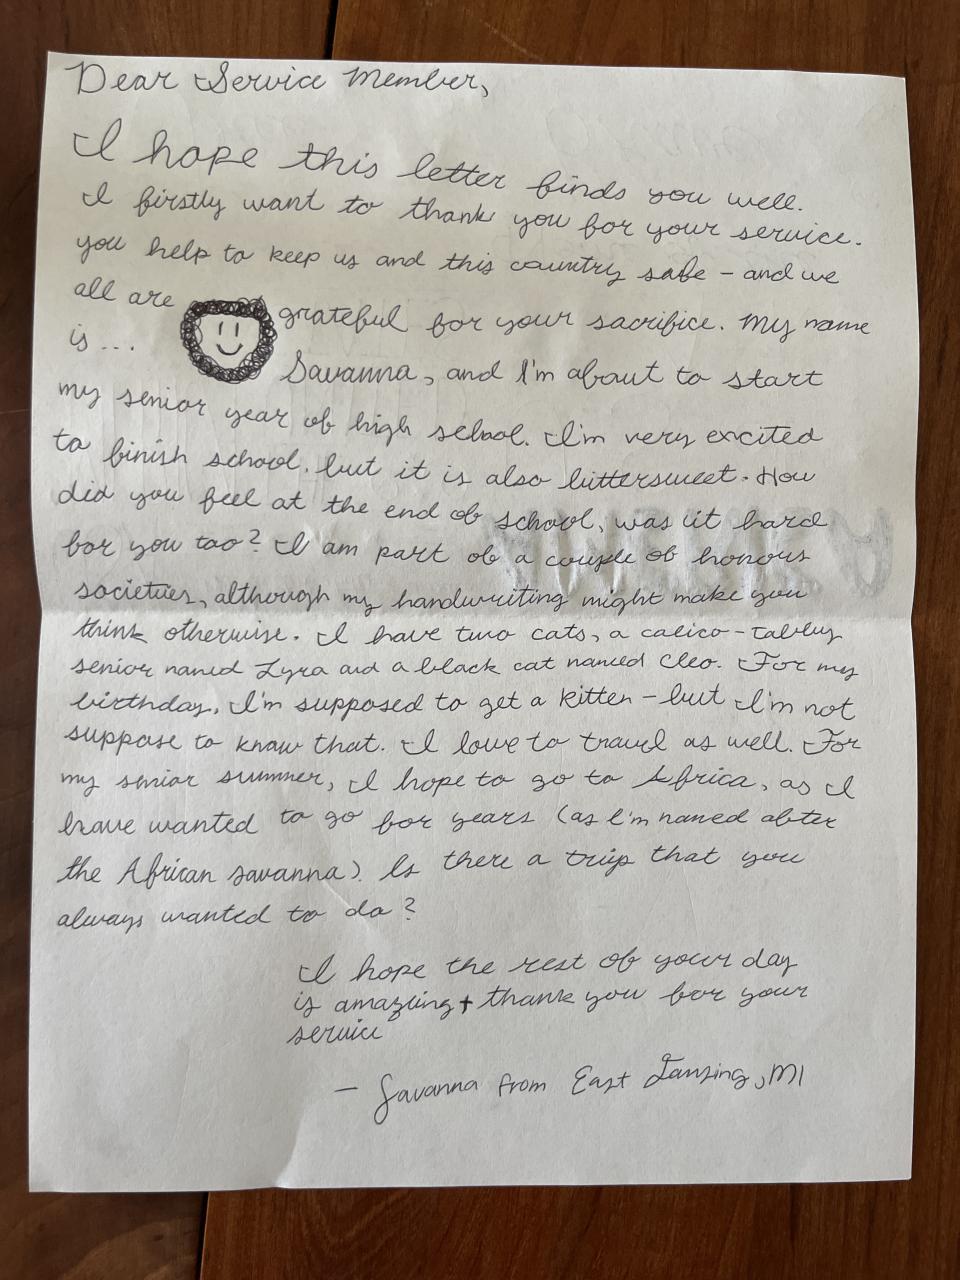 Dear Service Member,
I hope this letter finds you well.
I firstly want to thank you for your service.
you help to keep us and this country safe – and we
all are grateful for your sacrifice. My name
is ... Savanna, and I'm about to start
my senior year of high school. I'm very excited
to finish school, but it is also bittersweet. How
did you feel at the end of school, was it hard
for you too? I am part of a couple of honors
societies, although my handwriting might make you
think otherwise. I have two cats, a calico-tabby
senior named Lyra and a black cat named Cleo. For my
birthday, I'm supposed to get a kitten – but I'm not
suppose to know that. I love to travel as well. For
my senior summer, I hope to go to Africa, as I
have wanted to go for years (as I'm named after
the African savanna). Is there a trip that you
always wanted to do?
I hope the rest of your day
is amazing + thank you for your
service
– Savanna from East Lansing, MI